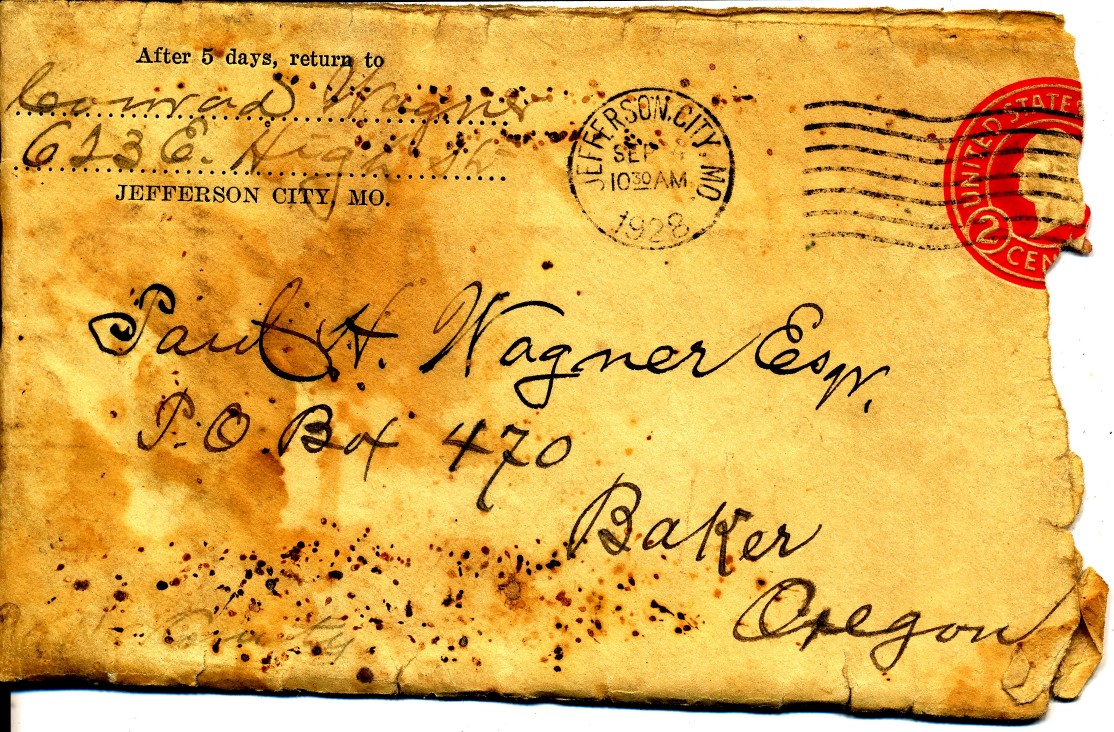 After 5 days, return to
Conrad Wagner
623 E. High St
JEFFERSON CITY, MO.
JEFFERSON CITY, MO.
SEP 4
10 30 AM
1928
UNITED STATES
2
CEN
Paul H. Wagner Esqr.
P.O. Box 470
Baker
Oregon
County